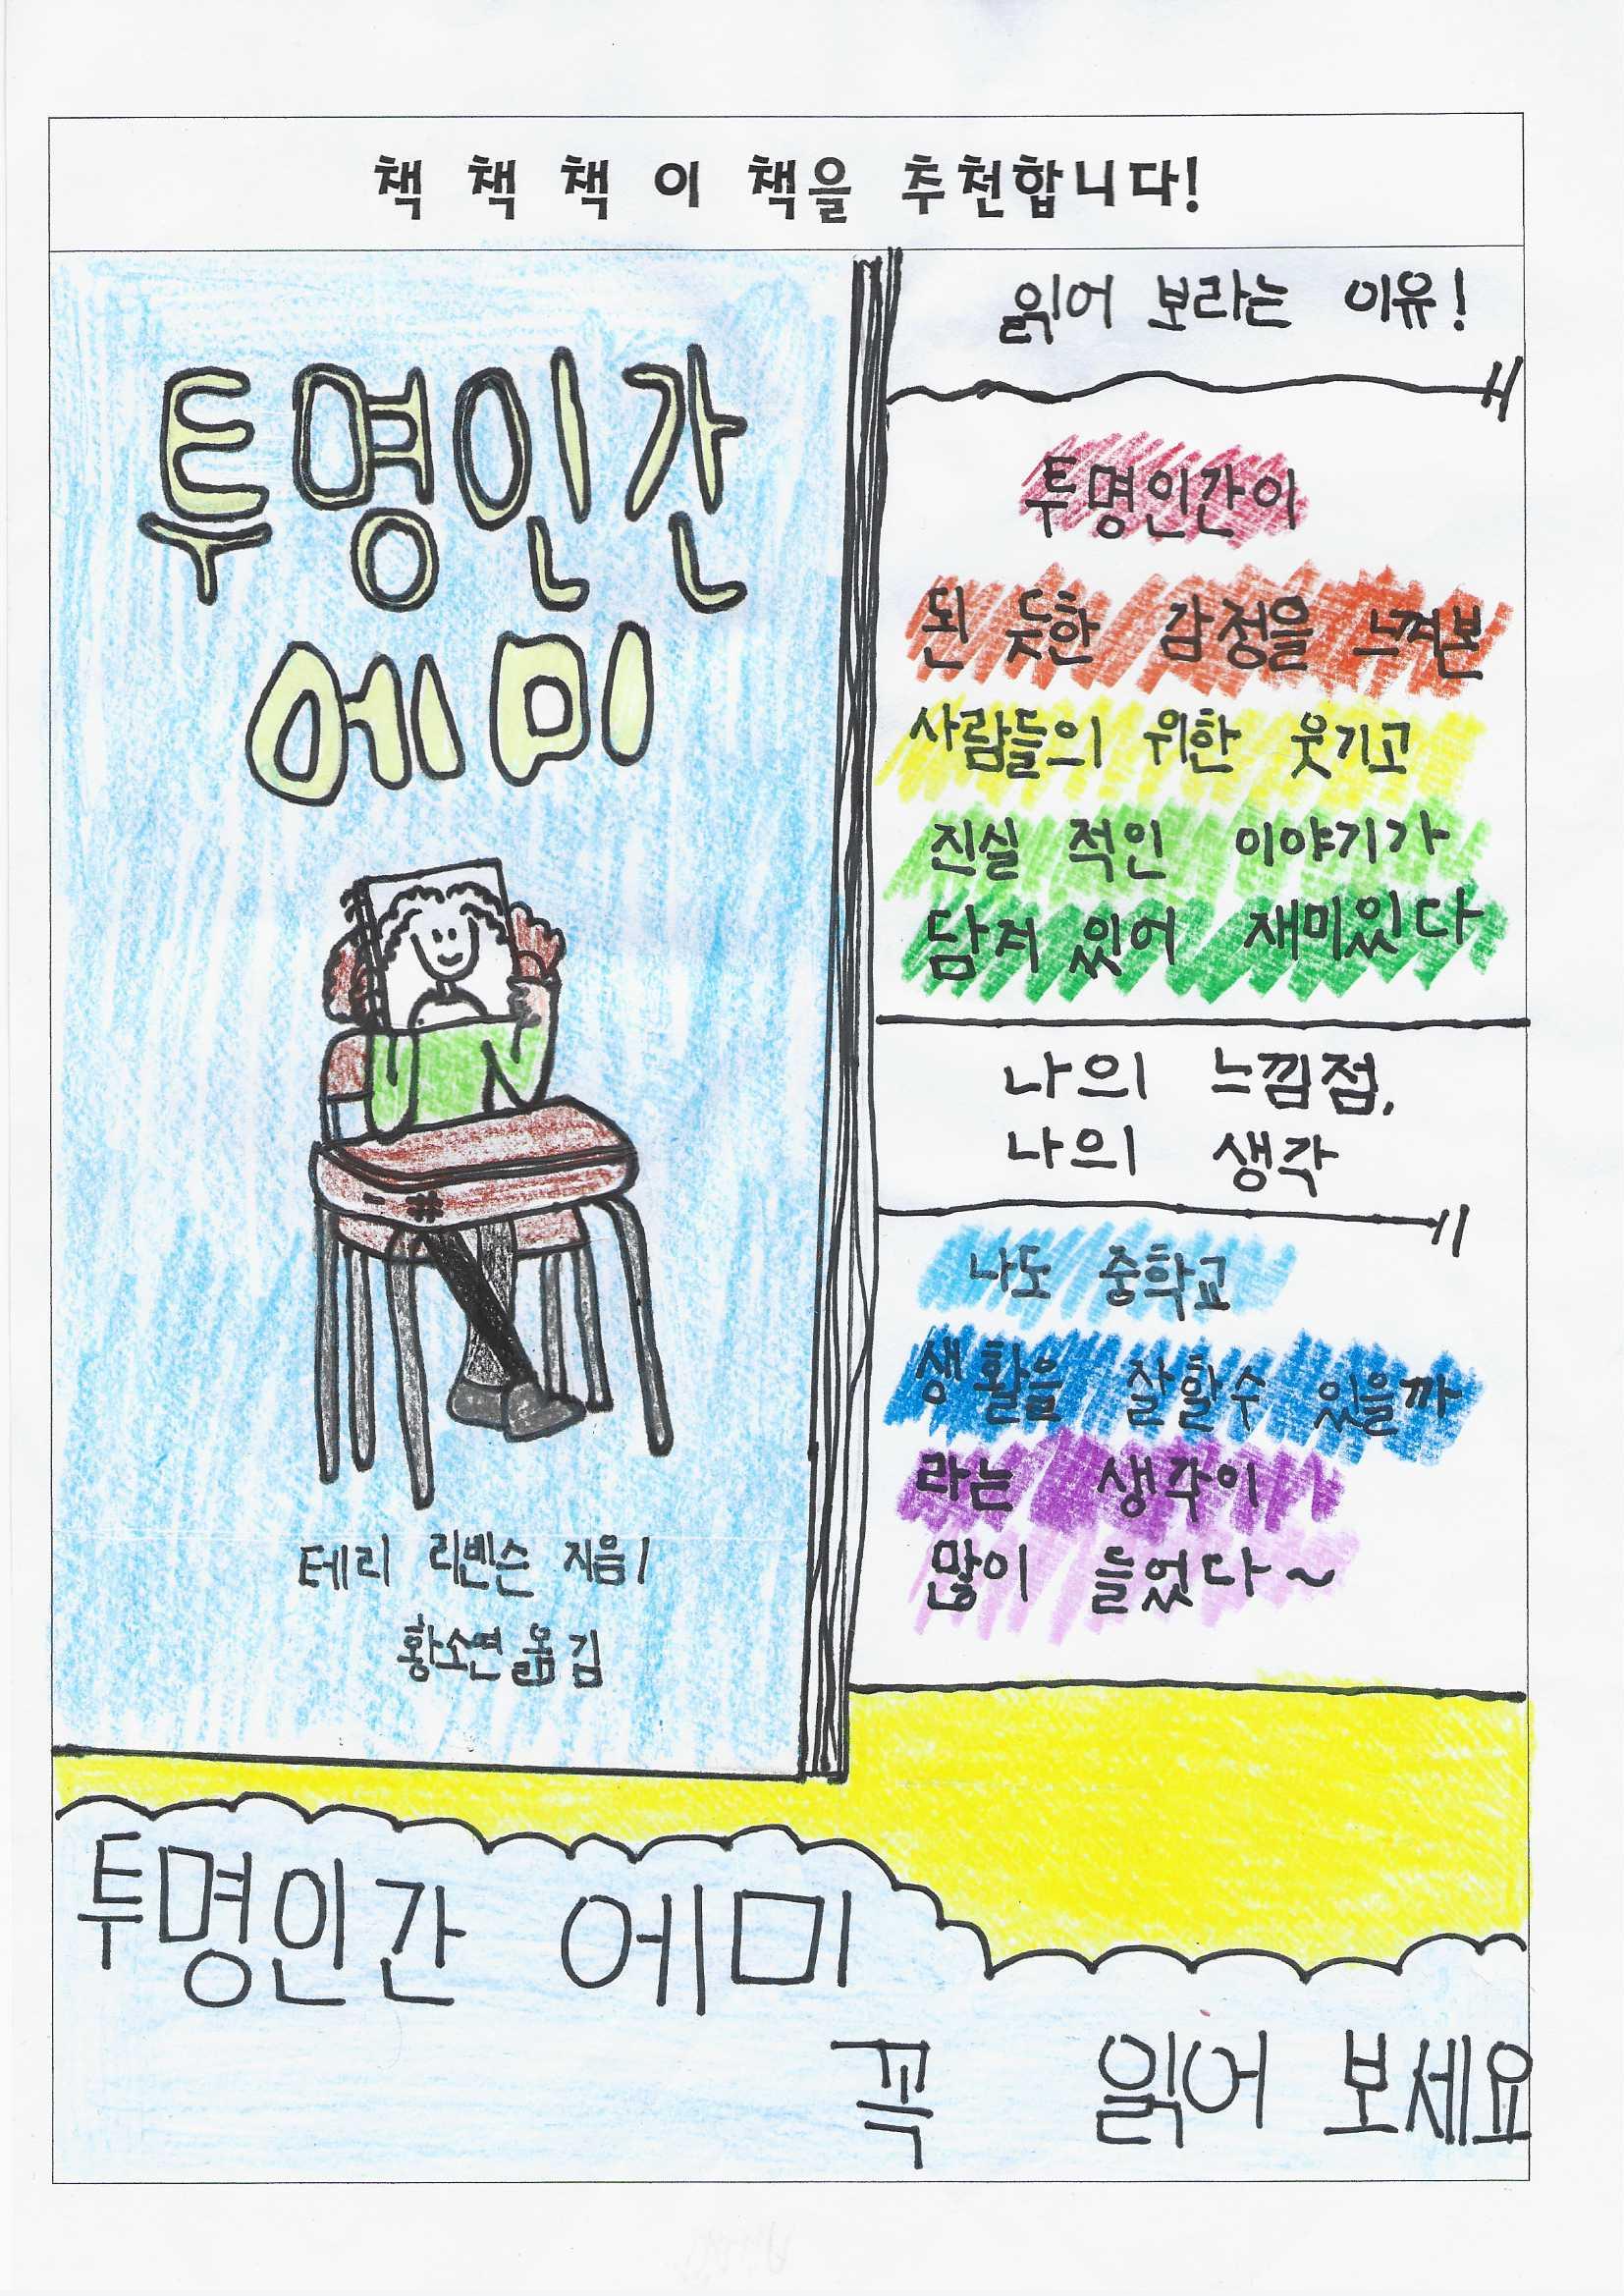 책 책 책 이 책을 추천합니다!
투명인간
에미
테리 리벤슨 지음
황소연 옮김
읽어 보라는 이유!
투명인간이
된 듯한 감정을 느껴본
사람들의 위한 웃기고
진실 적인 이야기가
담겨 있어 재미있다
나의 느낌점,
나의 생각
나도 중학교
생활을 잘할수 있을까
라는 생각이
많이 들었다~
투명인간 에미
꼭 읽어 보세요